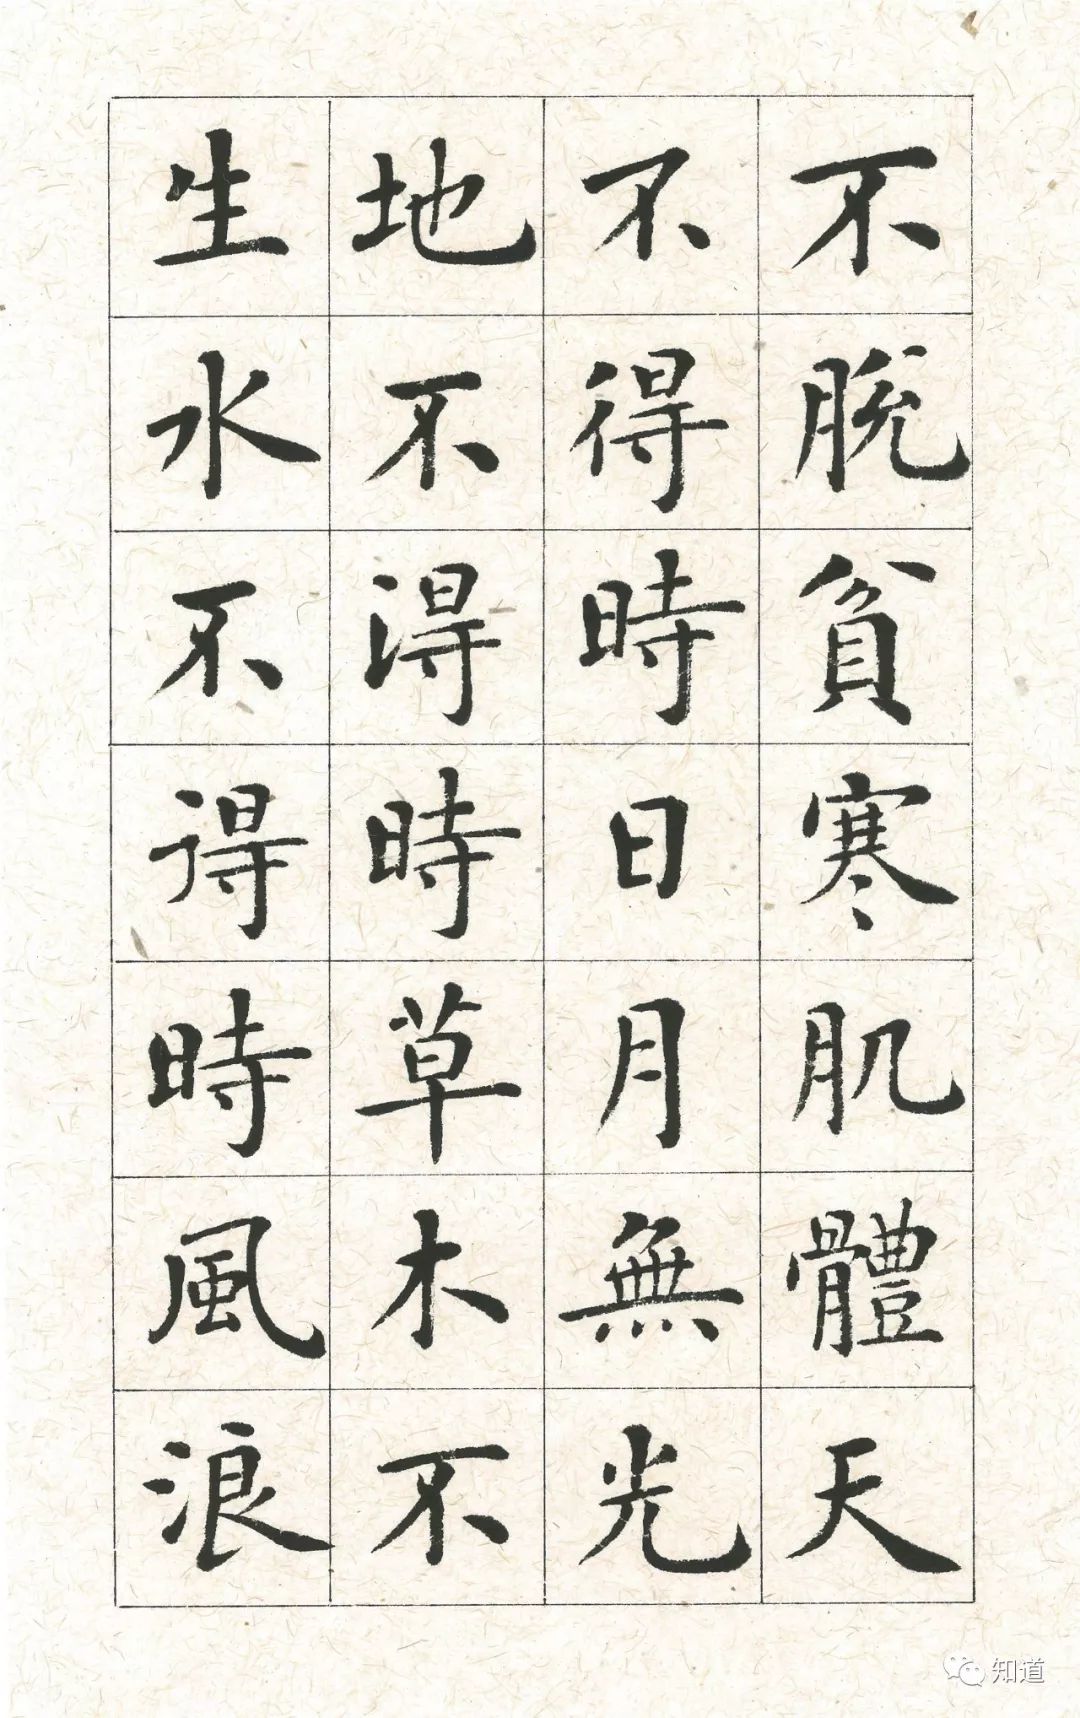 不脫貧寒肌體天
不得時日月無光
地不得時草木不
生水不得時風浪
知道